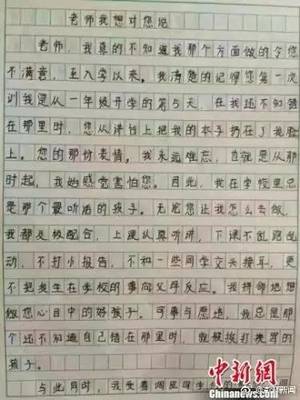 老师我想对您说
老师,我真的不知道我那个方面做的令您
不满意,至入学以来。我清楚的记得您第一次
训我是从一年级开学的第5天,在我还不知错
在那里时,您从讲台上把我的本子扔在了我脸
上。您的那份表情。我永远难忘,也就是从那
时起,我始感觉害怕您。因此,我在学校里总
是那个最听话的孩子。无论您让我怎么去做,
我都是极配合,上课认真听讲,下课不乱跑乱
动,不打小报告,不和一些同学交头接耳,更
不把发生在学校的事向父母反应。我拼命地想
做您心目中的好孩子。可事与愿违,我总是那
个还不知道自己错在那里时,就被挨打挨骂的
孩子。
与此同时,我受着
中新网